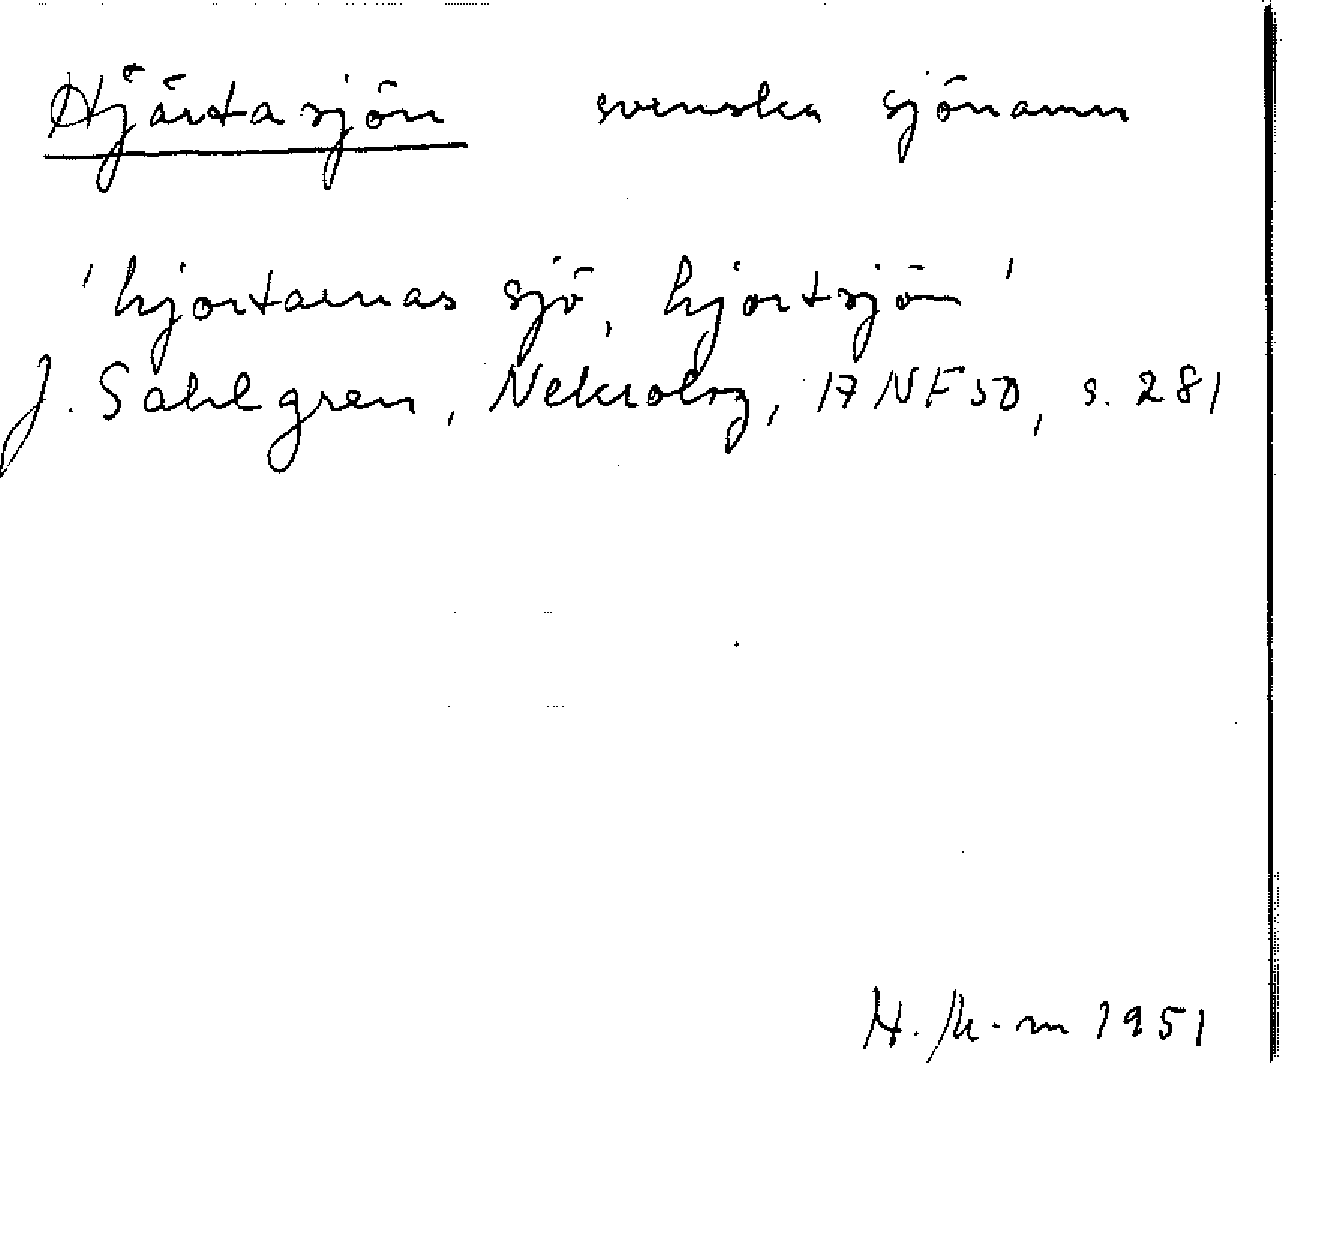 Hjärtasjön svenska sjönamn
'hjortarnas sjö, hjortsjön'
J. Sahlgren, Nekrolog, ANF 50, s. 281
H. 1951